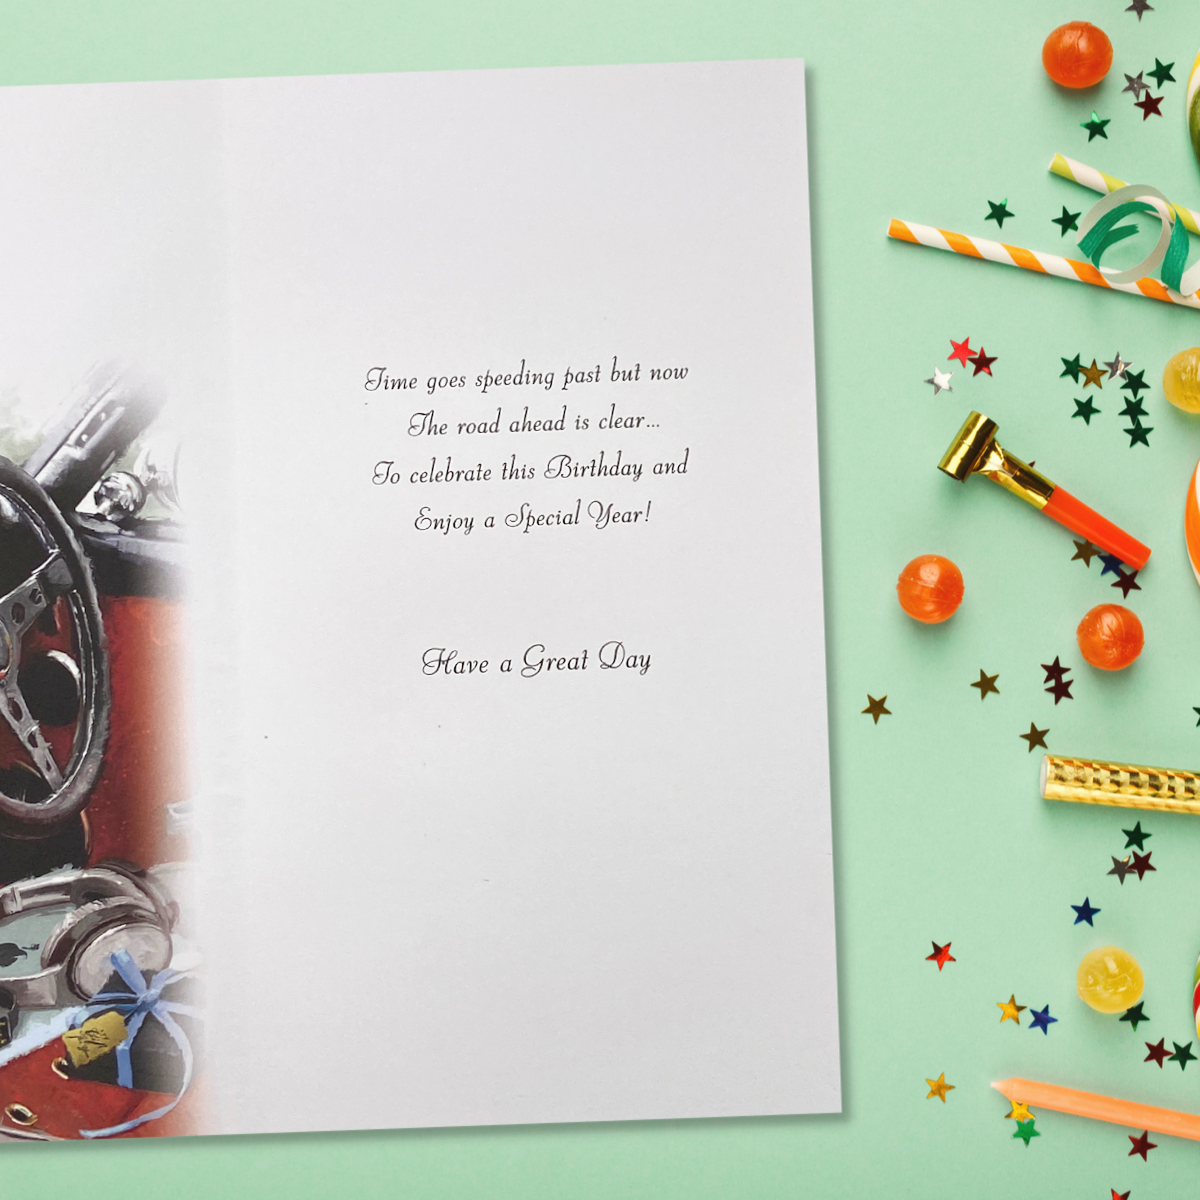 Time goes speeding past but now
The road ahead is clear...
To celebrate this Birthday and
Enjoy a Special Year!
Have a Great Day